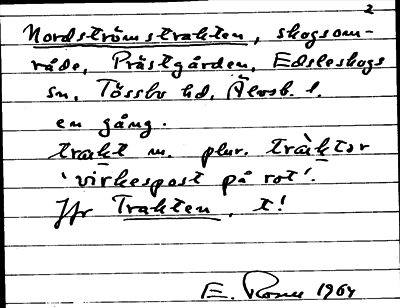 2
Nordströmstrakten, skogsom-
råde, Prästgården, Edsleskogs
sn, Tössbo hd, Älvsb. l.
en gång.
trakt m. plur. tràktər
'virkespost på rot'.
Jfr Trakten, t!
E. Rosén 1964